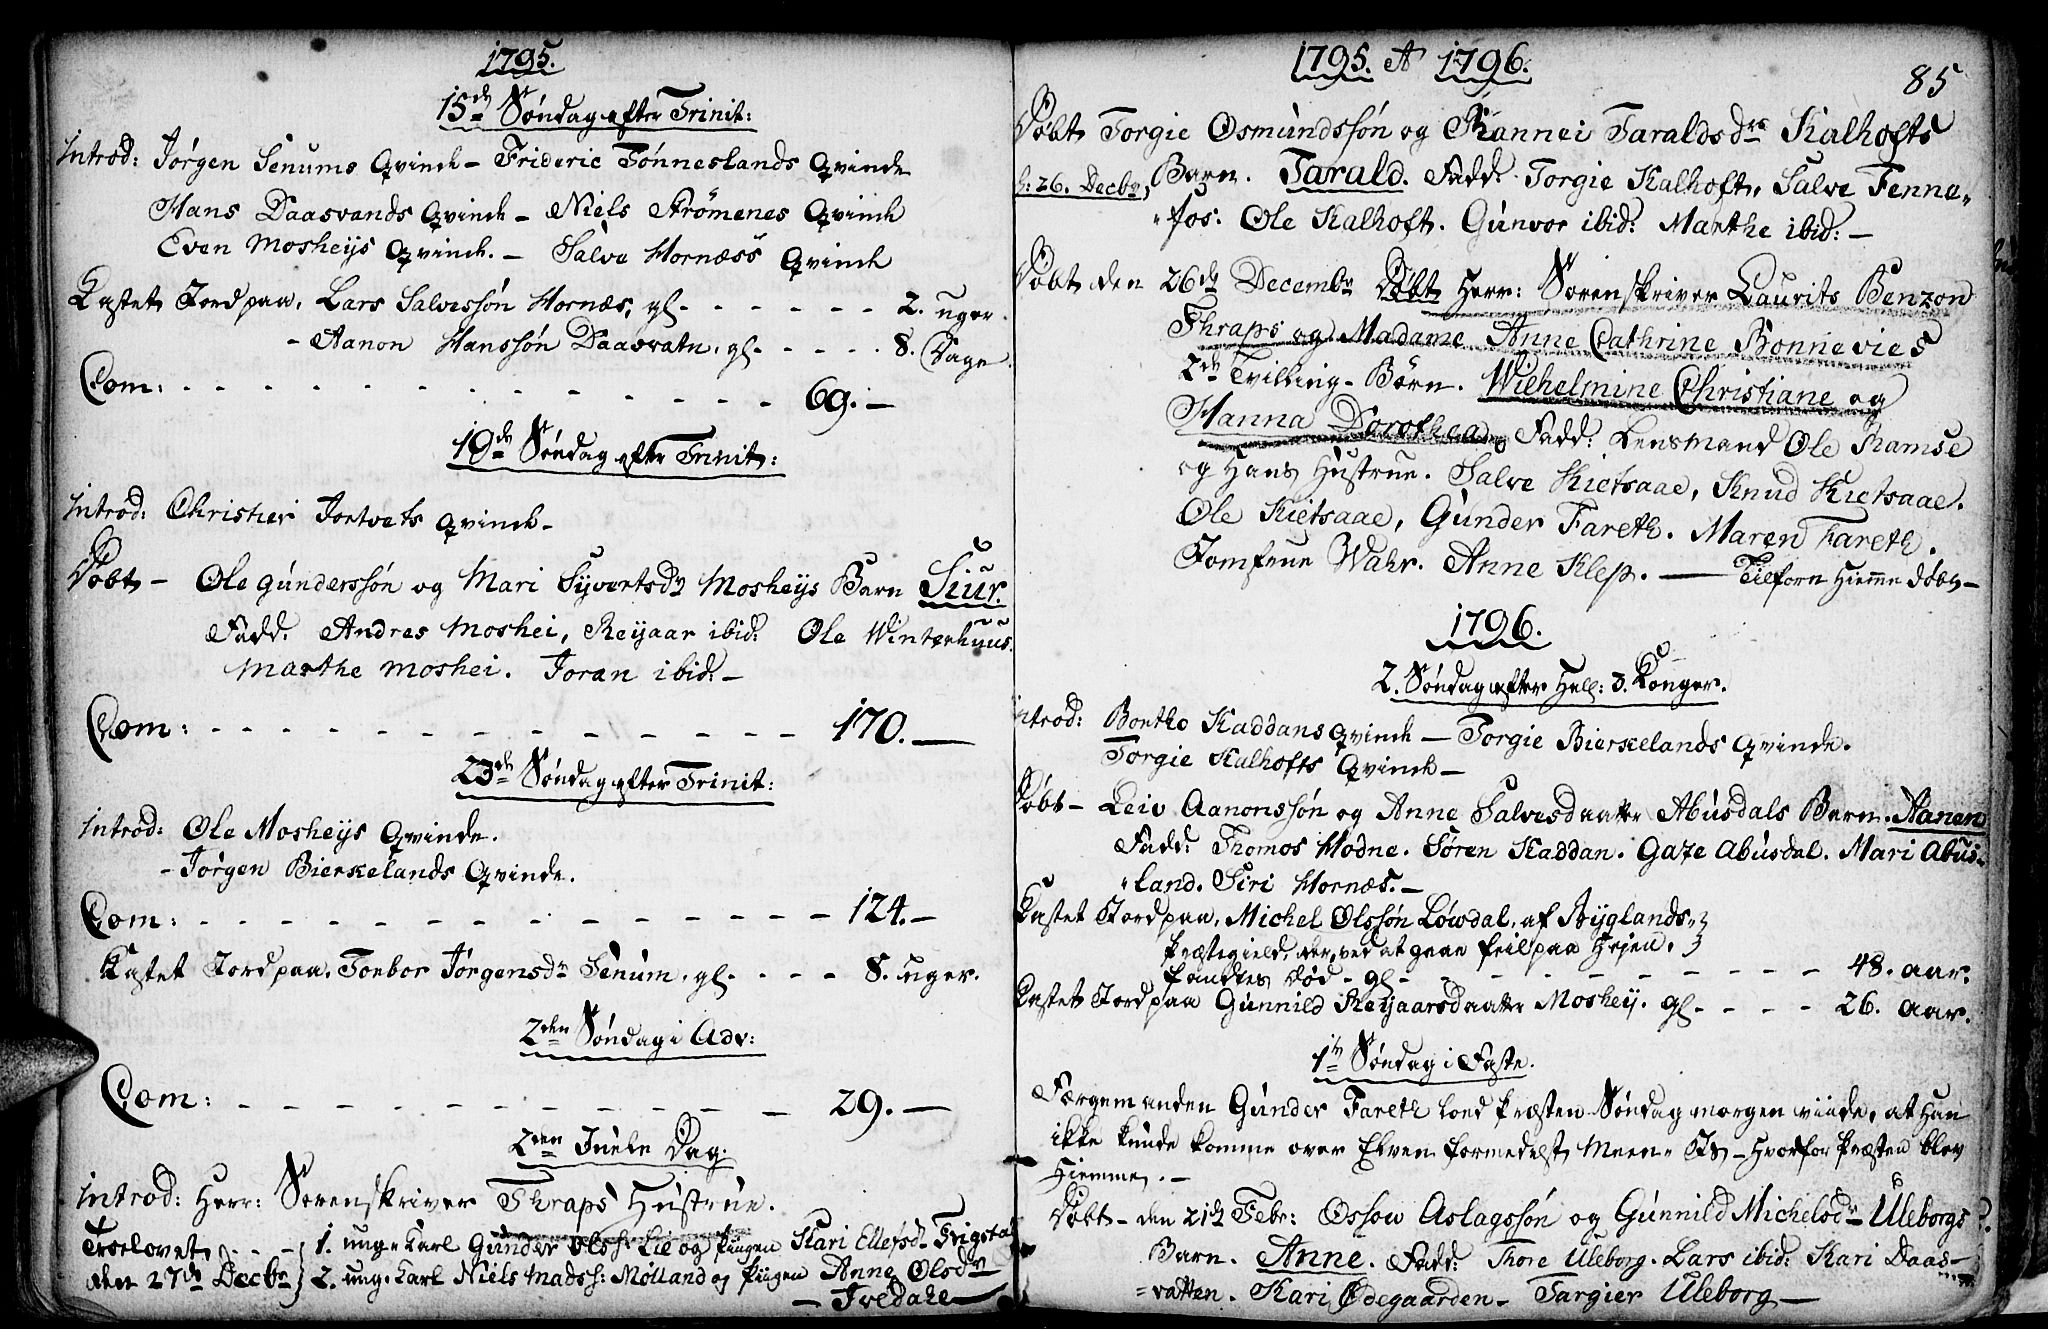 1795.
15de Søndag efter Trinit:
Introd: Jørgen Senums Qvinde – Frideric Tønneslands Qvinde
Hans Daasvands Qvinde – Niels Strømenes Qvinde
Even Mosheijs Qvinde. – Salve Hornæss Qvinde
Kastet Jord paa, Lars Salvessøn Hornæs, gl. - - - - - - 2. uger.
- Aanon Hanssøn Daasvatn, gl. - - - - - 8. Dage.
Com: - - - - - - - - - - - 69. –
19de Søndag efter Trinit:
Introd: Christier Jortvets Qvinde –
Døbt – Ole Gunderssøn og Mari Syvertsdr Mosheijs Barn Siur.
Fadd. Andres Moshei, Reijaar ibid: Ole Winterhuus.
Marthe Moshei. Joran ibid: –
Com: - - - - - - - - - - - - 170. —
23de Søndag efter Trinit:
Introd: Ole Mosheijs Qvinde.
- Jørgen Bierkelands Qvinde.
Com: - - - - - - - - - - - - 124. –
Kastet Jord paa, Torbor Jørgensdr Senum, gl. - - - - 8. uger.
2den Søndag i Adv:
Com: - - - - - - - - - - - 29. —
2den Juele Dag.
Introd: Herr: Sorenskriver Thraps Hustrue.
Troelovet - - - 1. ung-Karl Gunder Olss: Lie og Piigen Kari Ellefsdr Trigsta
den 27de Decbr 2. ung-Karl Niels Madss: Mølland og Piigen Anne Olsdr
— Ivedahl —
1795. A 1796.
85
Døbt Torgie Osmundssøn og Rannei Taraldsdrs Kalhofts
d: 26. Decbr, Barn. Tarald. Fadd. Torgie Kalhoft, Salve Fenne-
-fos: Ole Kalhoft. Gunvor ibid: Marthe ibid: –
Døbt den 26de Decembr Døbt Herr: Sorenskriver Laurits Benzon
Thraps og Madame Anne Cathrine Bonnevies
2de Tvilling-Børn. Wilhelmine Christiane og
Hanna Dorothea, Fadd: Lensmand Ole Ramse
og Hans Hustrue. Salve Kietsaae, Knud Kietsaae.
Ole Kietsaae, Gunder Fareth. Maren Fareth.
Jomfrue Wahr. Anne Klep. — Tilforn Hiemme døbt –
1796.
2. Søndag efter Hell: 3. Konger.
Introd: Bertho Kaddans Qvinde – Torgie Bierkelands Qvinde.
Torgie Kalhofts Qvinde –
Døbt – Leiv Aanonssøn og Anne Salvesdaatter Abusdals Barn. Aanen
Fadd: Thomos Hodne. Søren Kaddan. Gaze Abusdal. Mari Abus-
-land. Siri Hornæs. –
Kastet Jord paa, Michel Olssøn Løwdal, af Byglands
Præstegield, der, ved at gaae feil paa Hejen,
fandtes død - gl. - - - - - - - - - 48. aar.
Kastet Jord paa Gunnild Reijaarsdaatter Moshey. gl. - - - - 26. aar.
1te Søndag i Faste.
Færgemanden Gunder Fareth loed Præsten Søndag morgen viide, at Han
ikke kunde komme over Elven formedelst Meen-Iis – Hvorfor Præsten blev
Hiemme. –
Døbt – den 21de Febr: Ossow Aslagssøn og Gunnild Michelsdr Uleborgs
Barn. Anne. Fadd: Thore Uleborg. Lars ibid: Kari Daas-
-vatten. Kari Ødegaarden – Targier Uleborg —